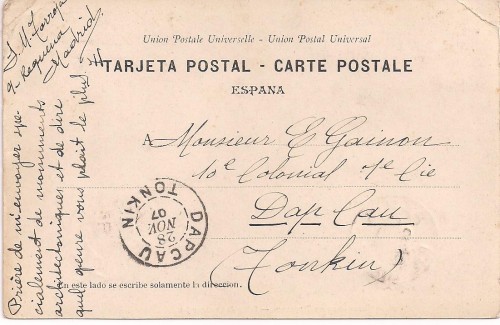 Union Postale Universelle - Union Postal Universal
TARJETA POSTAL - CARTE POSTALE
ESPANA
A Monsieur E Gainon
10e Colonial 1e Cie
Dap Cau
(Tonkin)
DAPCAU
28
NOV
07
TONKIN
En este lado se escribe solamente la direccion.
J. M. Torroja
9 Requena
Madrid
Prière de m'envoyer spe-
cialement de monuments
architectoniques et de dire
quel genre vous plait le plus.